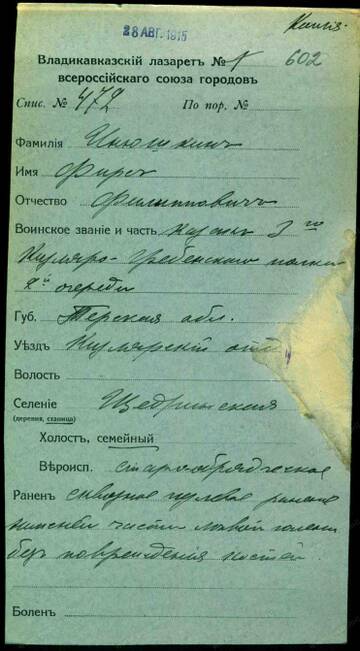 28 АВГ. 1915
Владикавказскій лазаретъ № 1 602
всероссійскаго союза городовъ
Спис. № 472 По пор. №
Фамилія Инюшкинъ
Имя Фирсъ
Отчество Филипповичъ
Воинское званіе и часть казакъ 3го
Кизляро-Гребенского полка
2й очереди
Губ. Терская обл.
Уѣздъ Кизлярскій отд
Волость
Селеніе Щедринская
(деревня, станица)
Холостъ, семейный
Вѣроисп. старообрядческое
Раненъ сквозное пулевое ранение
нижней части лѣвой голени
безъ поврежденія костей.
Боленъ